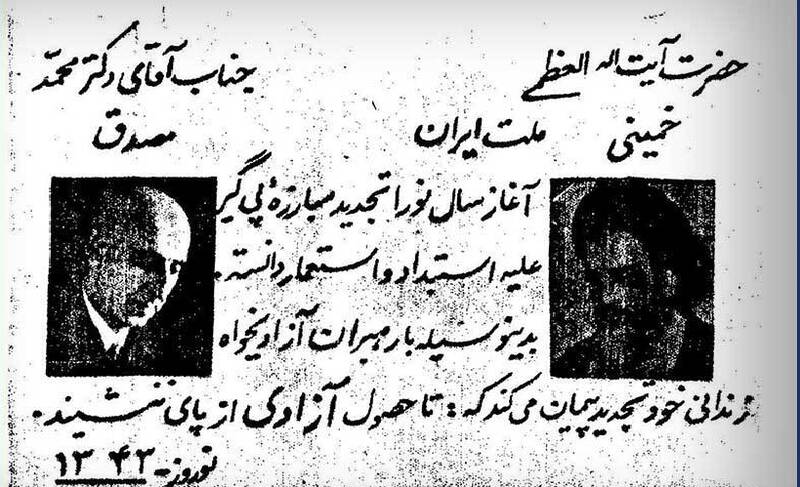 حضرت آیت اله العظمی
خمینی
جناب آقای دکتر محمّد
مصدق
ملت ایران
آغاز سال نو را تجدید مبارزهٔ پی گیر
علیه استبداد و استعمار دانسته.
بدینوسیله با رهبران آزادیخواه
زندانی خود تجدید پیمان می کند که: تا حصول آزادی از پای ننشیند.
نوروز - ۱۳۴۳